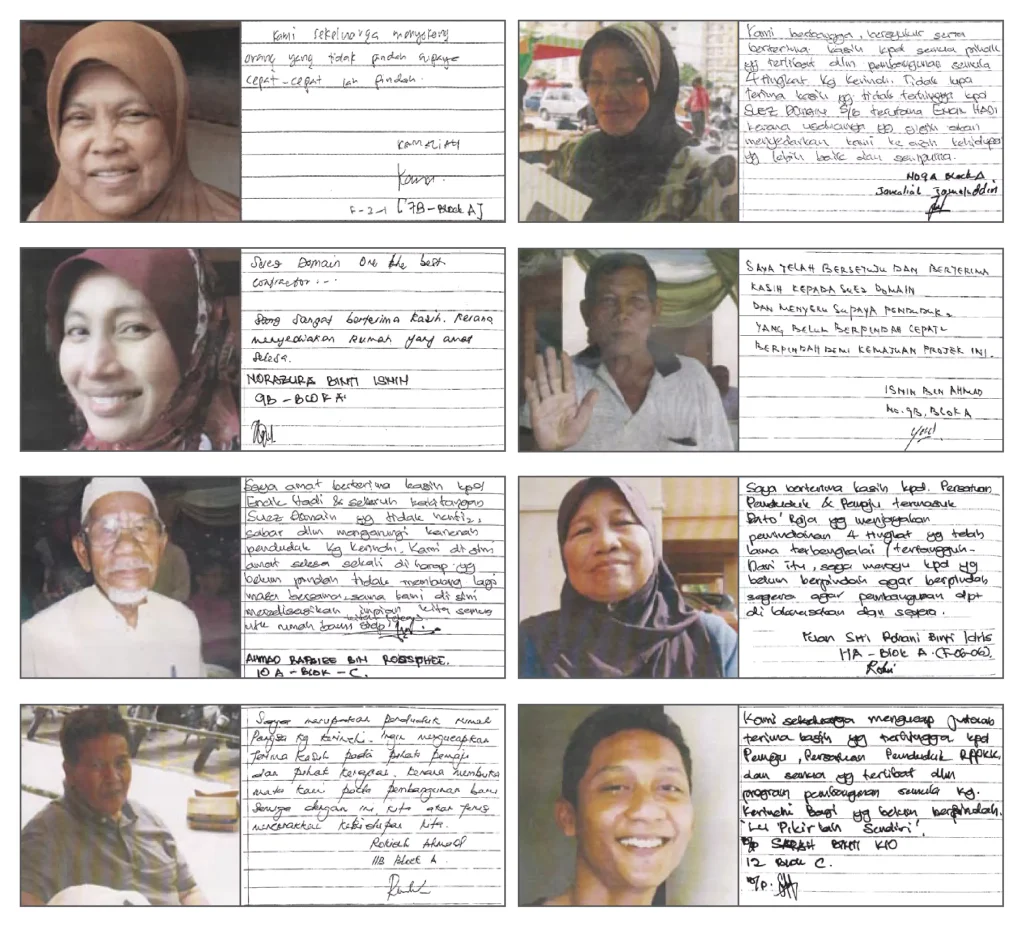 Kami sekeluarga menyokong
orang yang tidak pindah supaya
cepat-cepat lah pindah.
KAMALIAH
F-2-1 [7B-Block A]
Kami, berbangga, bersyukur serta
berterima kasih kpd semua pihak
yg terlibat dlm pembangunan semula
4 tingkat Kg Kerinchi. Tidak lupa
terima kasih yg tidak terhingga kpd
SUEZ DOMAIN S/B terutama ENCIK HADI
kerana usahanya yg gigih akan
menyedarkan kami ke arah kehidupan
yg lebih baik dan sempurna.
NO 9A Block A
Jamaliah Jamaluddin
Suez Domain One the best
contractor...
Saya Sangat berterima kasih. Kerana
menyediakan Rumah yang amat
selesa.
NORAZURA BINTI ISMIN
9B - BLOK A
SAYA TELAH BERSETUJU DAN BERTERIMA
KASIH KEPADA SUEZ DOMAIN
DAN MENYERU SUPAYA PENDUDUK2
YANG BELUM BERPINDAH CEPAT2
BERPINDAH DEMI KEMAJUAN PROJEK INI.
ISMIN BIN AHMAD
NO. 9B, BLOK A
Saya amat berterima kasih kpd
Encik Hadi & seluruh kakitangan
Suez Domain yg tidak henti2,
sabar dlm menangani karenah
penduduk Kg Kerinchi. Kami di sini
amat selesa sekali di harap yg
belum pindah tidak membuang lagi
masa bersama-sama kami di sini
merealisasikan impian kita semua
utk rumah baru
AHMAD BIN
10 A - BLOK - C.
Saya berterima kasih kpd. Persatuan
Penduduk & Pemaju termasuk
Dato' Raja yg menjayakan
pemindahan 4 tingkat yg telah
lama terbengkalai / tertangguh.
Dari itu, saya merayu kpd yg
belum berpindah agar berpindah
segera agar pembangunan dpt
di laksanakan dgn segera.
Puan Siti Rohani Binti Idris
11A - BLOK A. (F-06-06).
Saya merupakan penduduk rumah
Pangsa Kg Kerinchi. Ingin mengucapkan
terima kasih pada pihak pemaju
dan pihak kerajaan. kerana membuka
mata kami pada pembangunan baru
Semoga dengan ini kita akan terus
kehidupan kita.
Rokiah Ahmad
11B Block A
Kami sekeluarga mengucap jutaan
terima kasih yg terhingga kpd
Pemaju, Persatuan Penduduk RPPKK,
dan semua yg terlibat dlm
program pembangunan semula Kg.
Kerinchi Bagi yg belum berpindah.
'Lu Pikir lah Sendiri'.
B/P SARAH BINTI KIO
12 Blok C.
B/P.